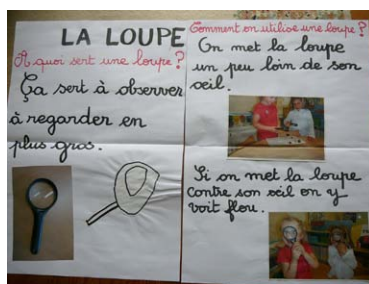 LA LOUPE
A quoi sert une loupe?
Ça sert à observer
à regarder en
plus gros.
Comment on utilise une loupe?
On met la loupe
un peu loin de son
œil.
Si on met la loupe
contre son œil on y
voit flou.